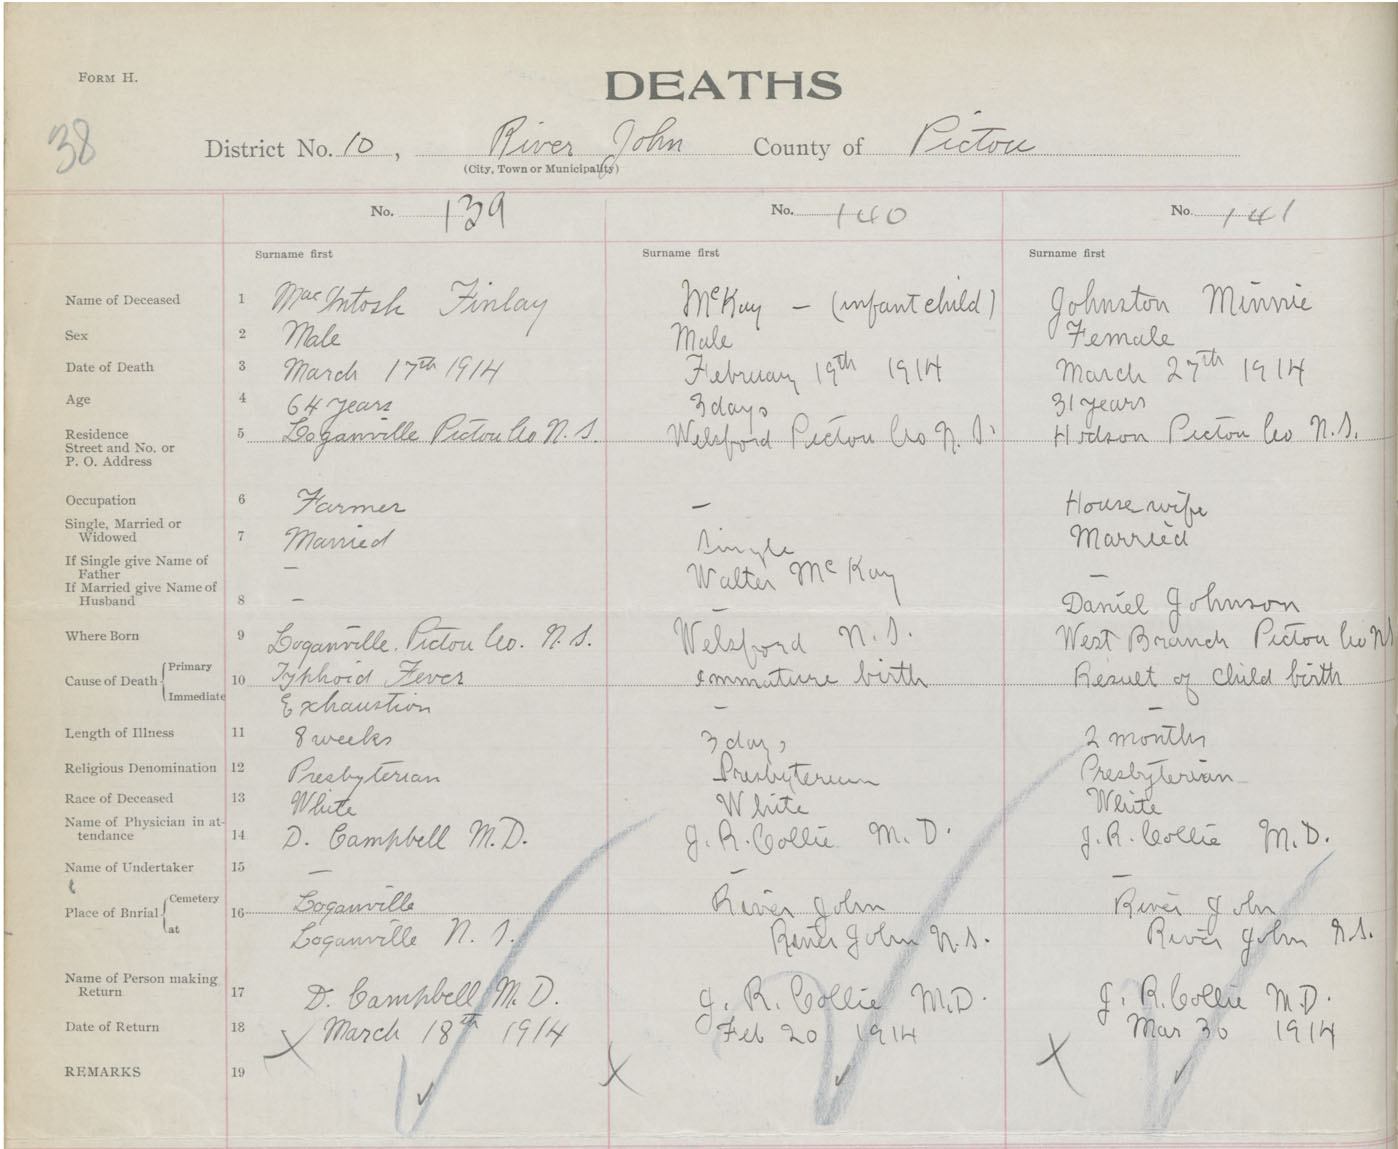 FORM H.
DEATHS
38
District No. 10, River John County of Pictou
(City, Town or Municipality)
No. 139 No. 140 No. 141
Surname first Surname first Surname first
Name of Deceased 1 MacIntosh Finlay McKay — (infant child) Johnston Minnie
Sex 2 Male Male Female
Date of Death 3 March 17th 1914 February 19th 1914 March 27th 1914
Age 4 64 years 3 days 31 years
Residence 5 Loganville Pictou Co N.S. Welsford Pictou Co N.S. Hodson Pictou Co N.S.
Street and No. or
P. O. Address
Occupation 6 Farmer — House wife
Single, Married or
Widowed 7 Married Single Married
If Single give Name of
Father — Walter McKay —
If Married give Name of
Husband 8 — — Daniel Johnson
Where Born 9 Loganville. Pictou Co. N.S. Welsford N.S. West Branch Pictou Co N.S
Cause of Death { Primary 10 Typhoid Fever Immature birth Result of Child birth
Immediate Exhaustion — —
Length of Illness 11 8 weeks 3 days 2 months
Religious Denomination 12 Presbyterian Presbyterian Presbyterian
Race of Deceased 13 White White White
Name of Physician in at-
tendance 14 D. Campbell M.D. J.R. Collie M.D. J.R. Collie M.D.
Name of Undertaker 15 — — —
Place of Burial { Cemetery 16 Loganville River John River John
at Loganville N.S. River John N.S. River John N.S.
Name of Person making
Return 17 D. Campbell M.D. J.R. Collie M.D. J.R. Collie M.D.
Date of Return 18 March 18th 1914 Feb 20 1914 Mar 30 1914
REMARKS 19